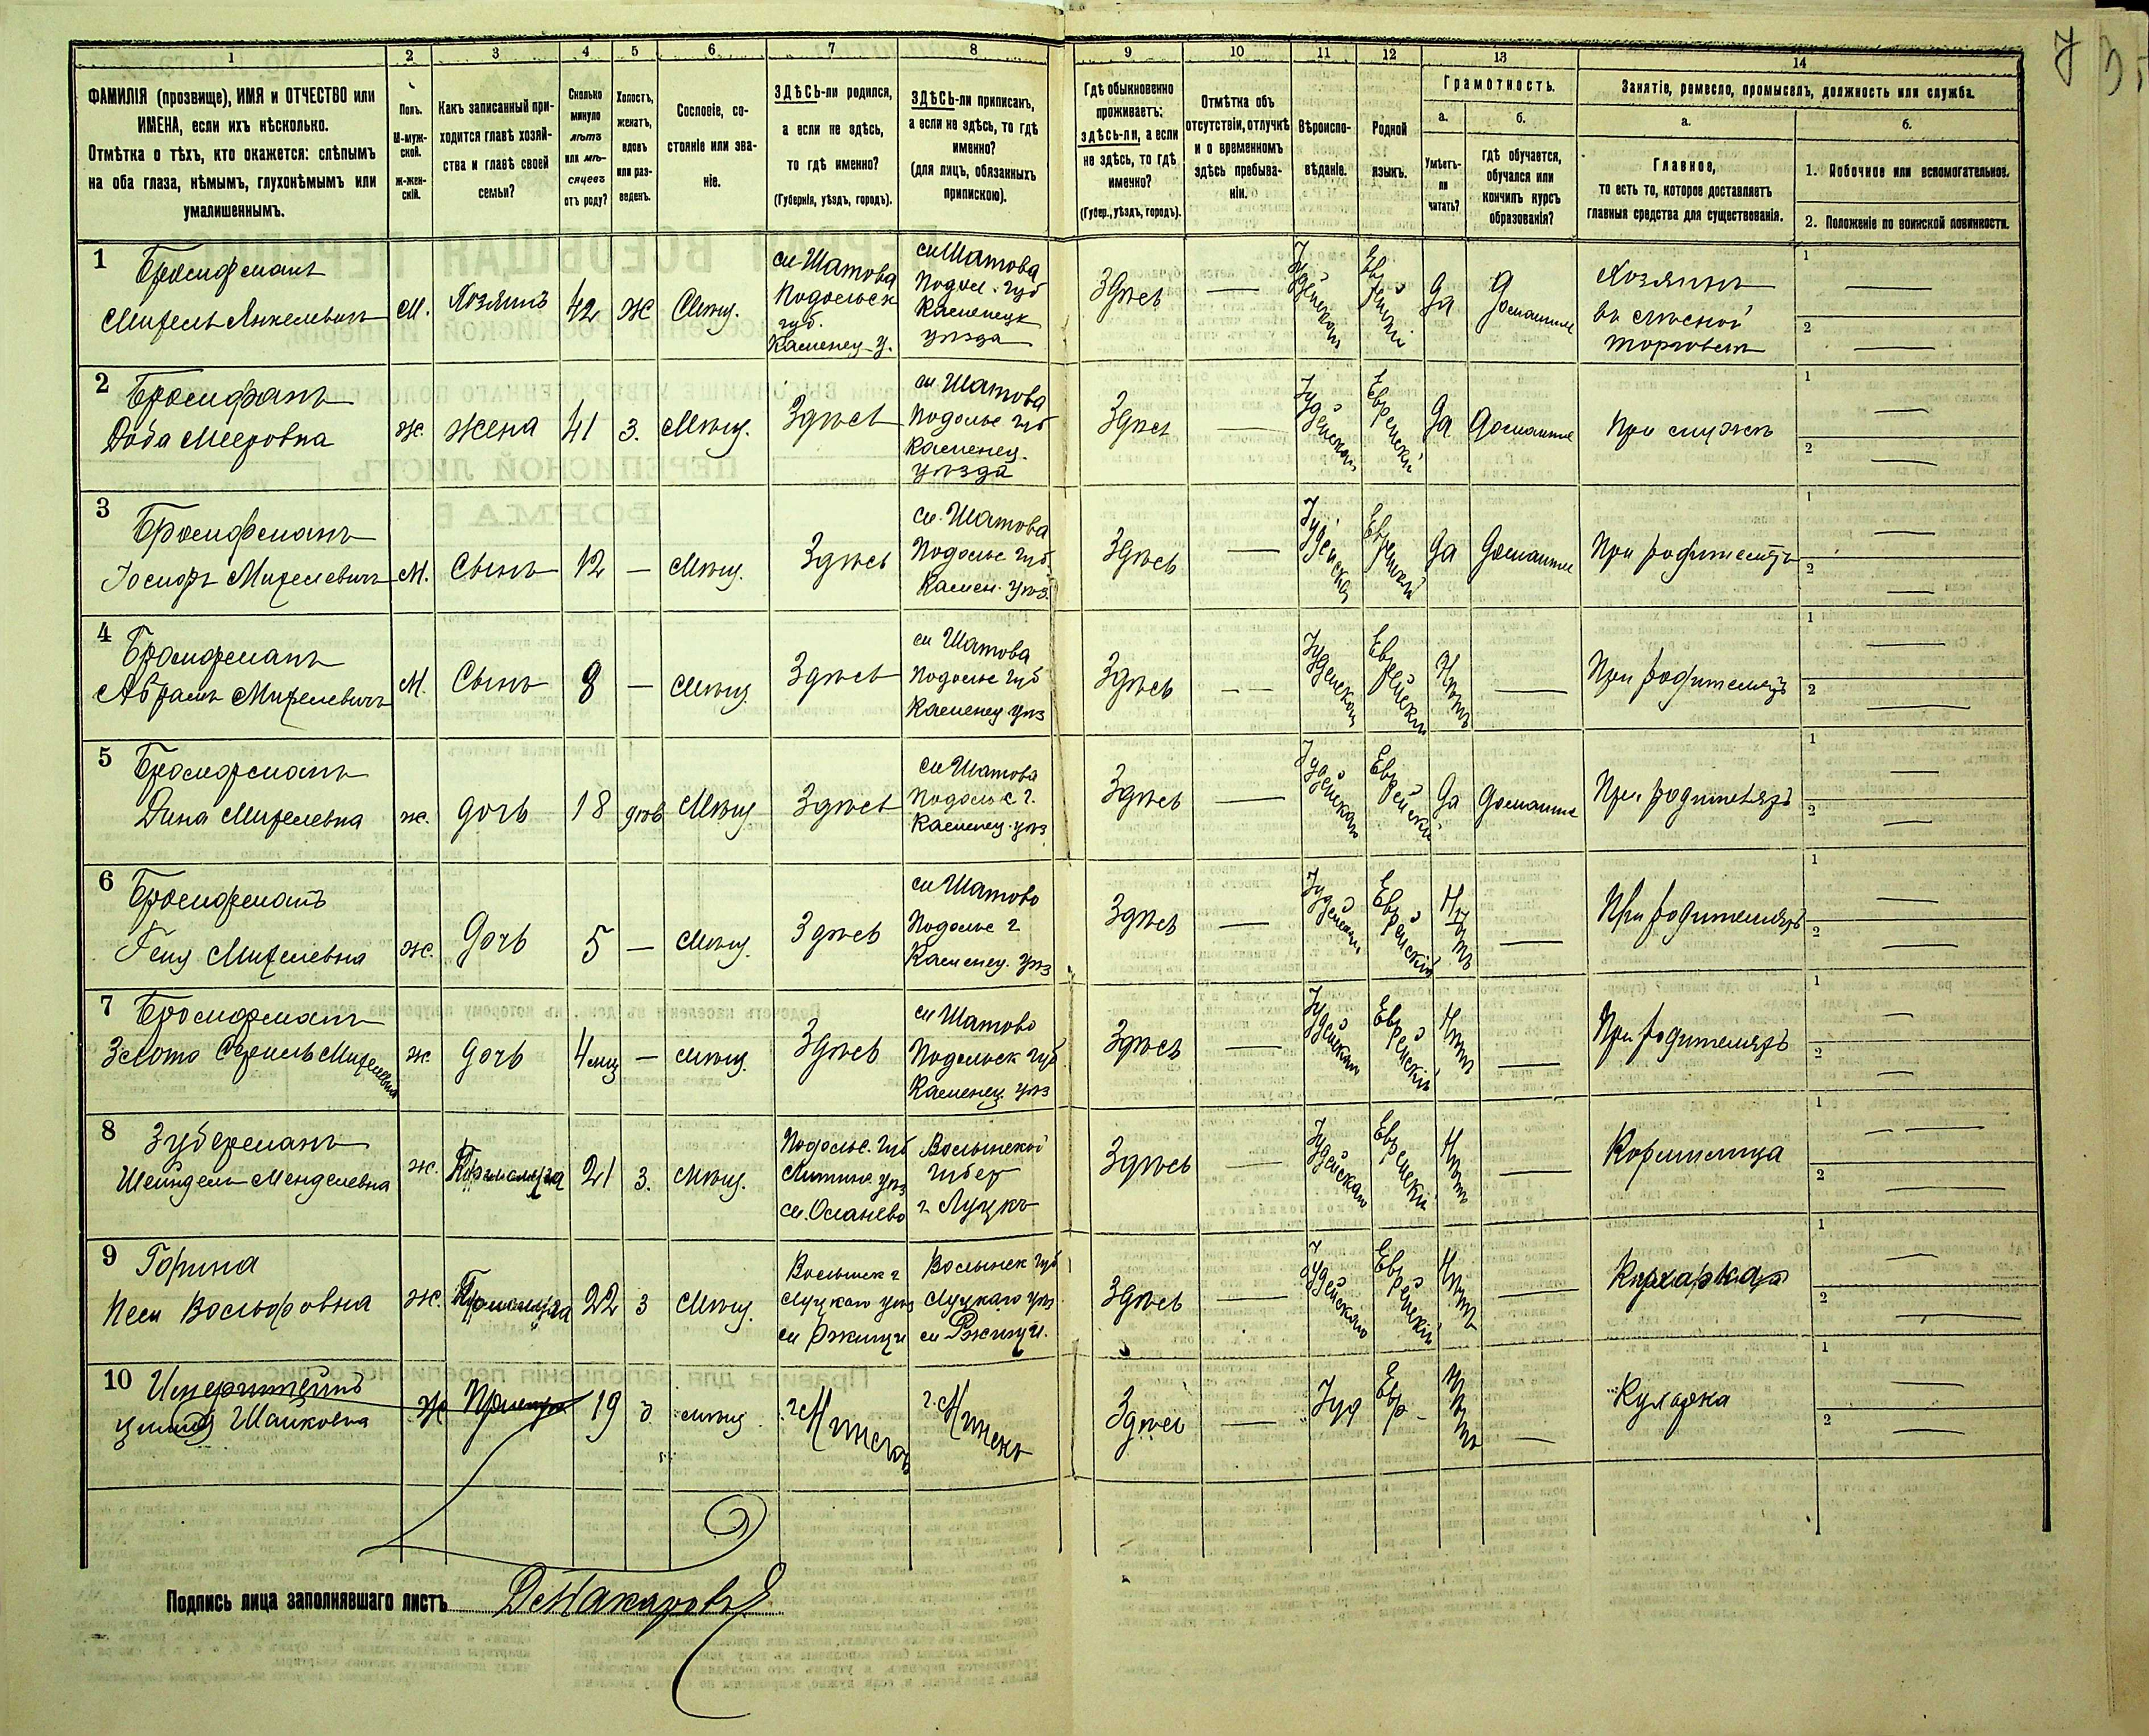 1 2 3 4 5 6 7 8 9 10 11 12 13 14
ФАМИЛІЯ (прозвище), ИМЯ и ОТЧЕСТВО или
ИМЕНА, если ихъ нѣсколько.
Отмѣтка о тѣхъ, кто окажется: слѣпымъ
на оба глаза, нѣмымъ, глухонѣмымъ или
умалишеннымъ.
Полъ.
М-муж-
ской.
ж-жен-
скій.
Какъ записанный при-
ходится главѣ хозяй-
ства и главѣ своей
семьи?
Сколько
минуло
лѣтъ
или мѣ-
сяцевъ
отъ роду?
Холостъ,
женатъ,
вдовъ
или раз-
веденъ.
Сословіе, со-
стояніе или зва-
ніе.
ЗДѢСЬ-ли родился,
а если не здѣсь,
то гдѣ именно?
(Губернія, уѣздъ, городъ).
ЗДѢСЬ-ли приписанъ,
а если не здѣсь, то гдѣ
именно?
(для лицъ, обязанныхъ
припискою).
Гдѣ обыкновенно
проживаетъ:
здѣсь-ли, а если
не здѣсь, то гдѣ
именно?
(Губер., уѣздъ, городъ).
Отмѣтка объ
отсутствіи, отлучкѣ
и о временномъ
здѣсь пребыва-
ніи.
Вѣроиспо-
вѣданіе.
Родной
языкъ.
Грамотность.
а.
Умѣетъ-
ли
читать?
б.
гдѣ обучается,
обучался или
кончилъ курсъ
образованія?
Занятіе, ремесло, промыселъ, должность или служба.
а.
Главное,
то есть то, которое доставляетъ
главныя средства для существованія.
б.
1. Побочное или вспомогательное.
2. Положеніе по воинской повинности.
1 Бронфманъ
Михель Янкелевичъ
М. Хозяинъ 42 Ж Мѣщ.
м Шатова
Подольск
губ.
Каменец у.
м Шатова
Подол. губ
Каменецк
уѣзда
Здѣсь — Іудейская Еврейскій Да Домашнее
Хозяинъ
въ мясной
торговлѣ
1 —
2 —
2 Бронфманъ
Доба Мееровна
Ж. Жена 41 З. Мѣщ. Здѣсь
м Шатова
Подольс губ
Каменец.
уѣзда
Здѣсь — Іудейская Еврейскій Да Домашнее При мужѣ
1 —
2 —
3 Бронфманъ
Іосифъ Михелевичъ
М. Сынъ 12 — Мѣщ. Здѣсь
м. Шатова
Подольс губ.
Камен. уѣз.
Здѣсь — Іудейская Еврейскій Да Домашнее При родителяхъ
1 —
2 —
4 Бронфманъ
Абрамъ Михелевичъ
М. Сынъ 8 — Мѣщ Здѣсь
м Шатова
Подольс губ
Каменец уѣз
Здѣсь — — Іудейская Еврейскій Нѣтъ — При родителяхъ
1 —
2 —
5 Бронфманъ
Дина Михелевна
Ж. Дочь 18 дѣв Мѣщ Здѣсь
м Шатова
Подольс г.
Каменец. уѣз
Здѣсь — Іудейская Еврейскій Да Домашнее При родителяхъ
1 —
2 —
6 Бронфманъ
Геня Михелевна
Ж. Дочь 5 — Мѣщ. Здѣсь
м Шатово
Подольс г
Каменец. уѣз
Здѣсь — Іудейская Еврейскій Нѣтъ — При родителяхъ
1 —
2 —
7 Бронфманъ
Михелевна
Ж. Дочь 4 мѣц — Мѣщ. Здѣсь
м Шатово
Подольск губ
Каменец. уѣз
Здѣсь — Іудейская Еврейскій Нѣтъ — При родителяхъ
1 —
2 —
8 Зуберманъ
Шейндель Менделевна
Ж. 21 З. Мѣщ.
Подольс. губ
Литинс. уѣз
Волынской
губер
г Луцкъ
Здѣсь — Іудейская Еврейскій Нѣтъ — Кормилица
1 —
2 —
9 Горина
Песя Вольфовна
Ж. 22 З Мѣщ.
Волынск г
Луцкаго уѣз
м Рожищи
Волынск губ
Луцкаго уѣз
м Рожищи.
Здѣсь — Іудейская Еврейскій Нѣтъ — Кухарка
1 —
2 —
10
Шайковна
Ж 19 мѣщ г. Минскъ г. Минскъ
Здѣсь — Іуд Евр- Нѣтъ — Кухарка
1
2 —
Подпись лица заполнявшаго листъ Макаровъ